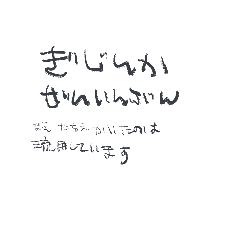 ぎじんか
ぜんいんぶん
まえ かいたのは
流用しています